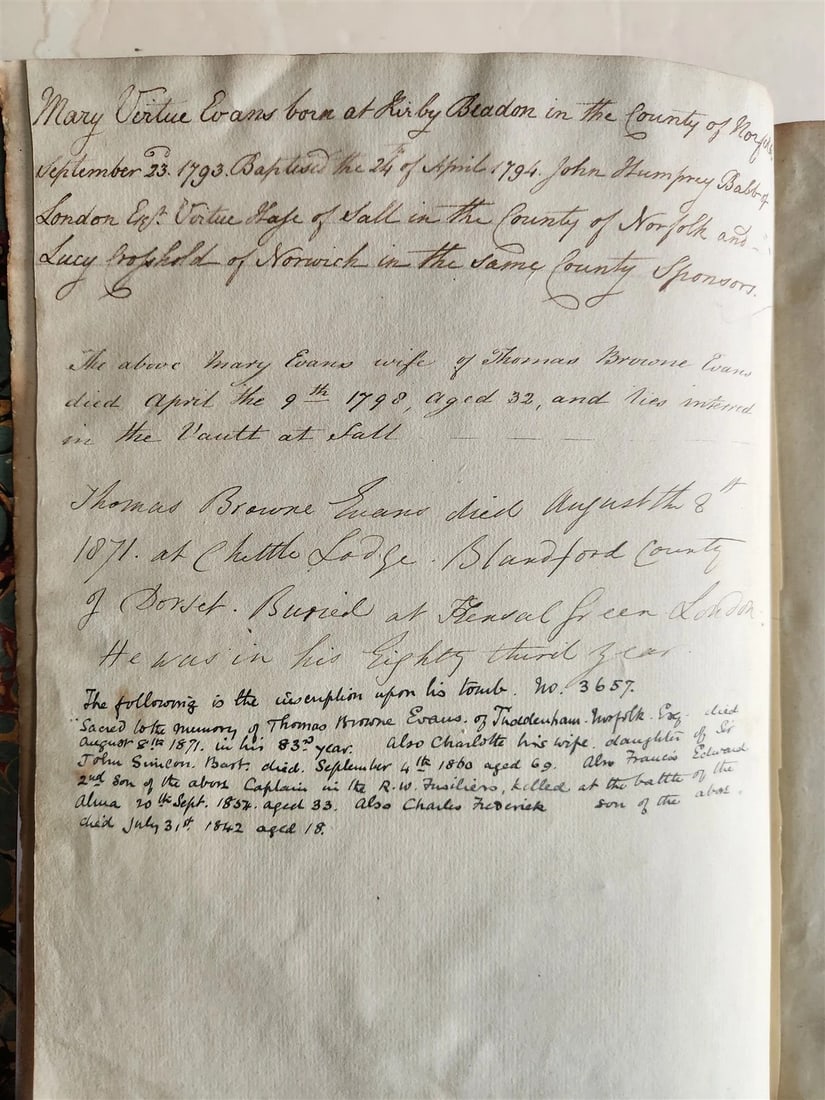 Mary Virtue Evans born at Kirby Beadon in the County of Norfolk
September 23. 1793. Baptised the 24th of April 1794. John Humprey Babb of
London Esqr. Virtue Hase of Sall in the County of Norfolk and
Lucy Crosshold of Norwich in the same County Sponsors.
The above Mary Evans wife of Thomas Browne Evans
died April the 9th 1798, aged 32, and lies interred
in the Vault at Sall
Thomas Browne Evans died August th 8th
1871. at Chettle Lodge. Blandford County
of Dorset. Buried at Kensal Green London.
He was in his Eighty third year.
The following is the inscription upon his tomb. No. 3657.
"Sacred to the memory of Thomas Browne Evans. of Tuddenham. Norfolk. Esq. died
August 8th 1871. in his 83rd year. Also Charlotte his wife. daughter of Sir
John Simeon. Bart. died. September 4th 1860 aged 69. Also Francis Edward
2nd son of the above Captain in the R.W. Fusiliers, killed at the battle of the
Alma 20th Sept. 1854. aged 33. Also Charles Frederick son of the above.
died July 31st 1842 aged 18.